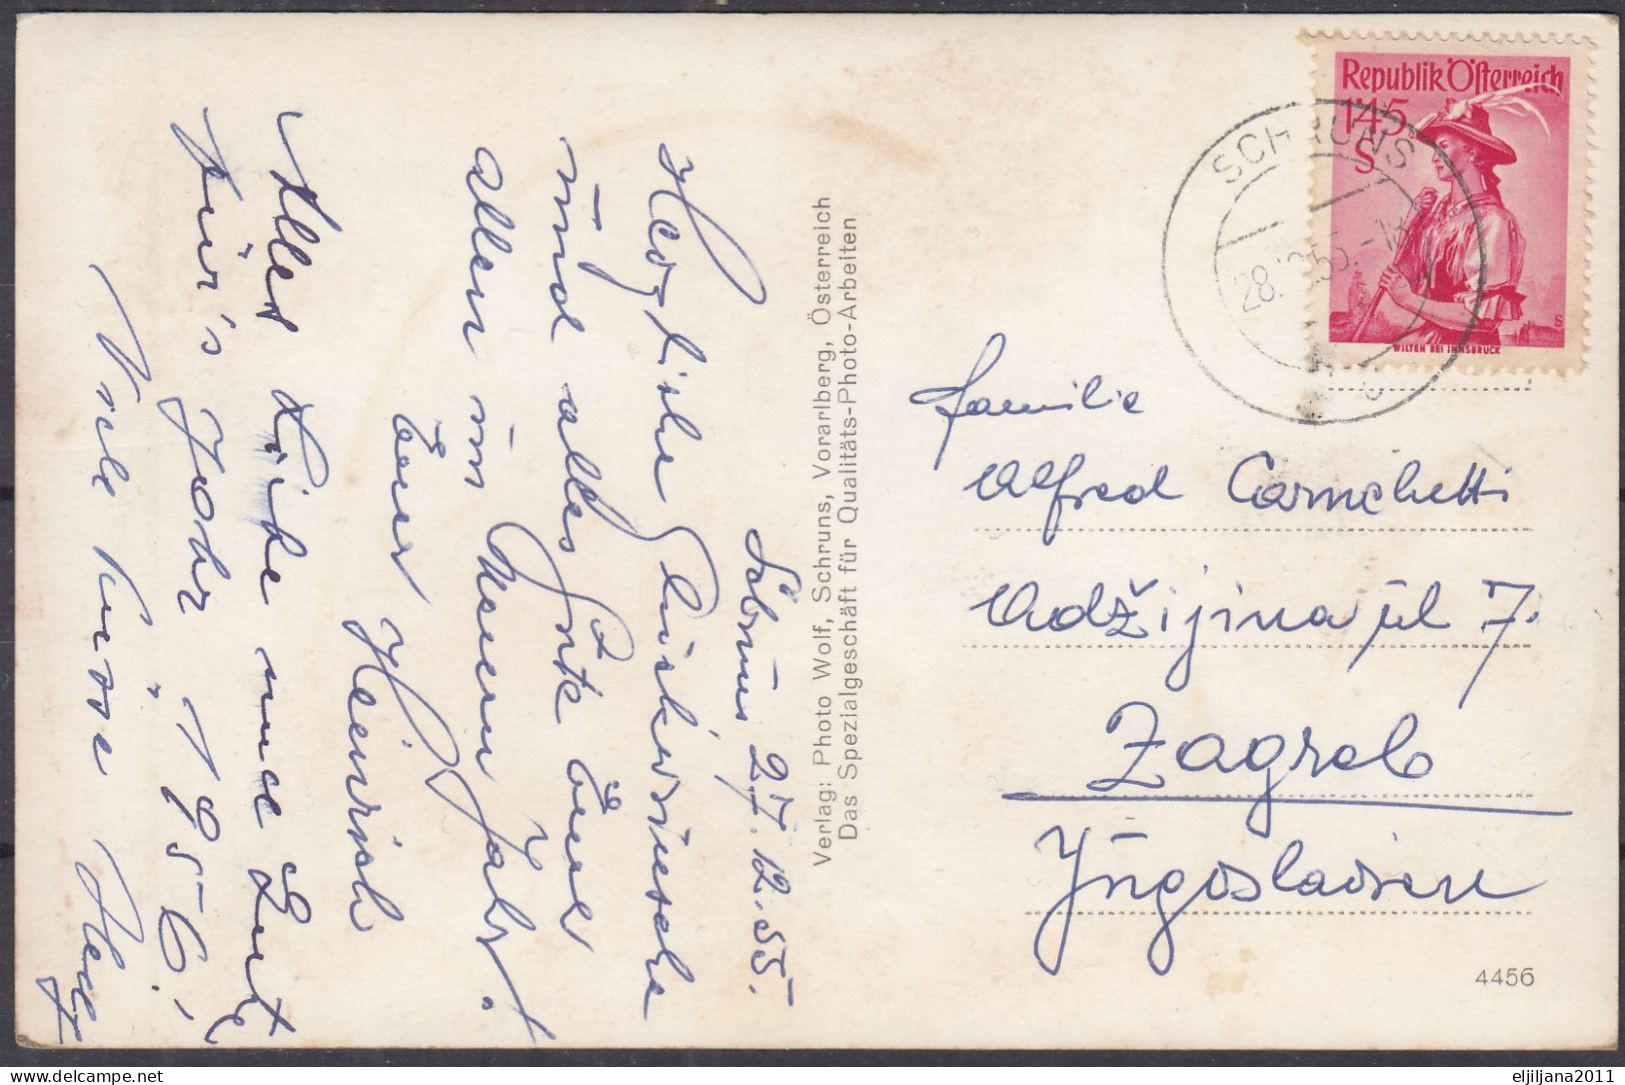 Schruns 27.12.55.
Herzliche Glückwünsche
und alles Gute Euch
allen im Neuen Jahr!
Euer Heinrich
Alles Liebe und Gute
für's Jahr 1956!
Viele Küsse Hedy
Verlag: Photo Wolf, Schruns, Vorarlberg, Österreich
Das Spezialgeschäft für Qualitäts-Photo-Arbeiten
Republik Österreich
1'45
S
WILTEN BEI INNSBRUCK
SCHRUNS
28.12.55.-18
Familie
Alfred Carnchetti
Adžijina ul 7.
Zagreb
Jugoslavien
4456
eljiljana2011